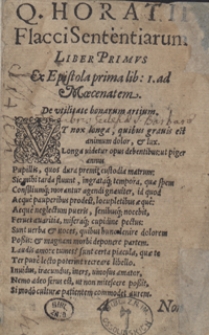 Q. HORATII
Flacci Sententiarum
LIBER PRIMVS
Ex Epistola prima lib: 1. ad
Mæcenatem.
De vtilitate bonarum artium.
VT nox longa, quibus
animus dolor, & lux
Longa videtur opus debentibus: ut piger
annus
Pupillis, quos dura premit custodia matrum:
Sic mihi tarda fluunt, ingrataq; tempora, quæ spem
Consiliumq; morantur agendi gnauiter, id quod
Aequè pauperibus prodest, locupletibus æquè:
Aequè neglectum pueris, senibusq; nocebit.
Feruet auaritia, miseraq; cupidine pectus:
Sunt verba & uoces, quibus hunc lenire dolorem
Possis: & magnam morbi deponere partem.
Laudis amore tumes? sunt certa piacula, quæ te
Ter purè lecto poterunt recreare libello.
Inuidus, iracundus, iners, vinosus, amator,
Nemo adeo ferus est, ut non mitescere possit,
Si modò culturæ patientem commodet aurem.